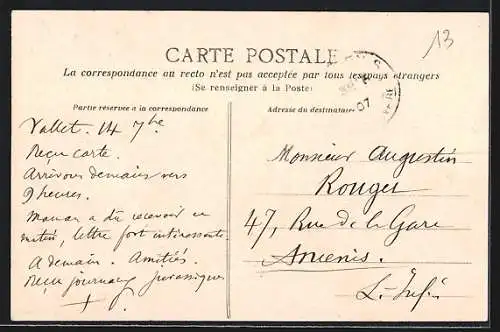 13
CARTE POSTALE
La correspondance au recto n'est pas acceptée par tous les pays étrangers
(Se renseigner à la Poste)
Partie réservée à la correspondance
Adresse du destinataire
07
Vallet. 14 7bre
Reçu carte.
Arrivons demain vers
9 heures.
Maman a dû recevoir ce
matin, lettre fort intéressante.
A demain. Amitiés.
Reçu journaux
Monsieur Augustin
Rouger
47, Rue de la Gare
Ancenis.
L. Infre